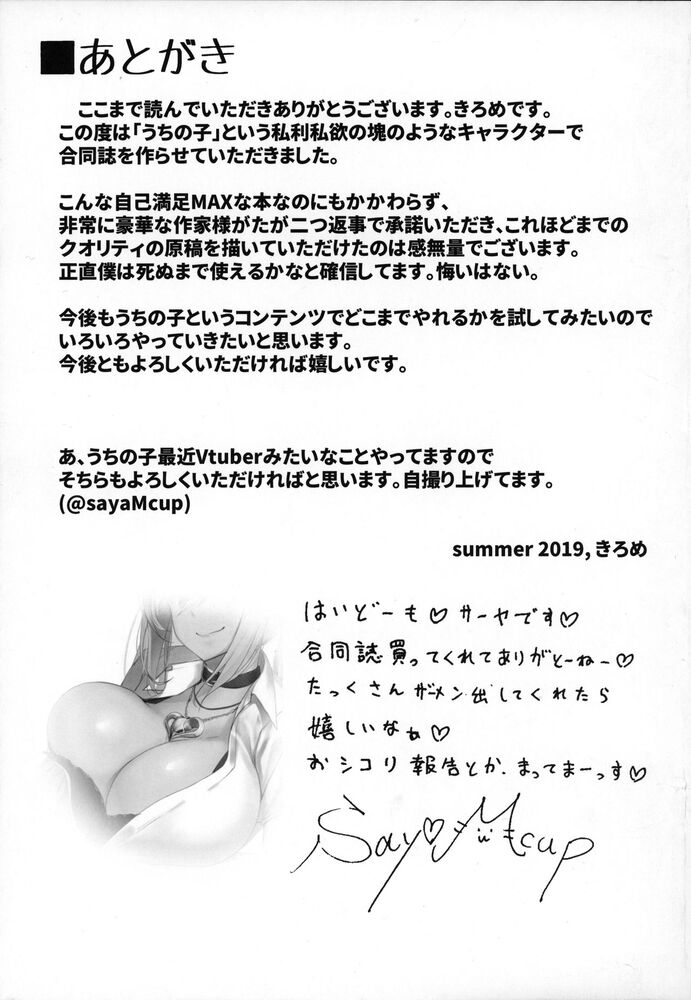 ■あとがき
ここまで読んでいただきありがとうございます。きろめです。
この度は「うちの子」という私利私欲の塊のようなキャラクターで
合同誌を作らせていただきました。
こんな自己満足MAXな本なのにもかかわらず、
非常に豪華な作家様がたが二つ返事で承諾いただき、これほどまでの
クオリティの原稿を描いていただけたのは感無量でございます。
正直僕は死ぬまで使えるかなと確信してます。悔いはない。
今後もうちの子というコンテンツでどこまでやれるかを試してみたいので
いろいろやっていきたいと思います。
今後ともよろしくいただければ嬉しいです。
あ、うちの子最近Vtuberみたいなことやってますので
そちらもよろしくいただければと思います。自撮り上げてます。
(@sayaMcup)
summer 2019, きろめ
はいどーも♡サーヤです♡
合同誌買ってくれてありがとーねー♡
たっくさんザーメン出してくれたら
嬉しいなぁ♡
おシコり報告とか、まってまーっす♡
Say♡Mcup